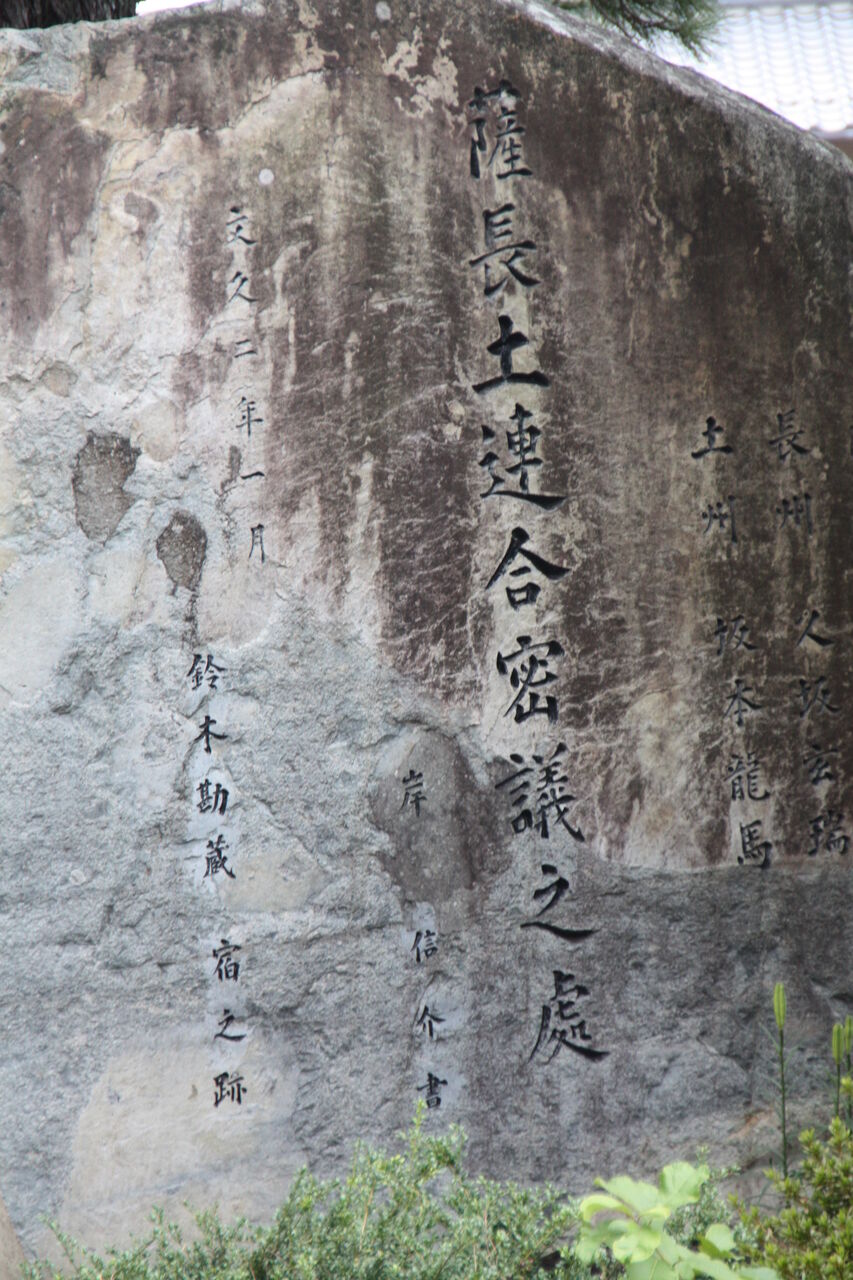 長州 人坂玄瑞
土州 坂本龍馬
薩長土連合密議之處
岸信介書
文久二年一月
鈴木勘蔵宿之跡